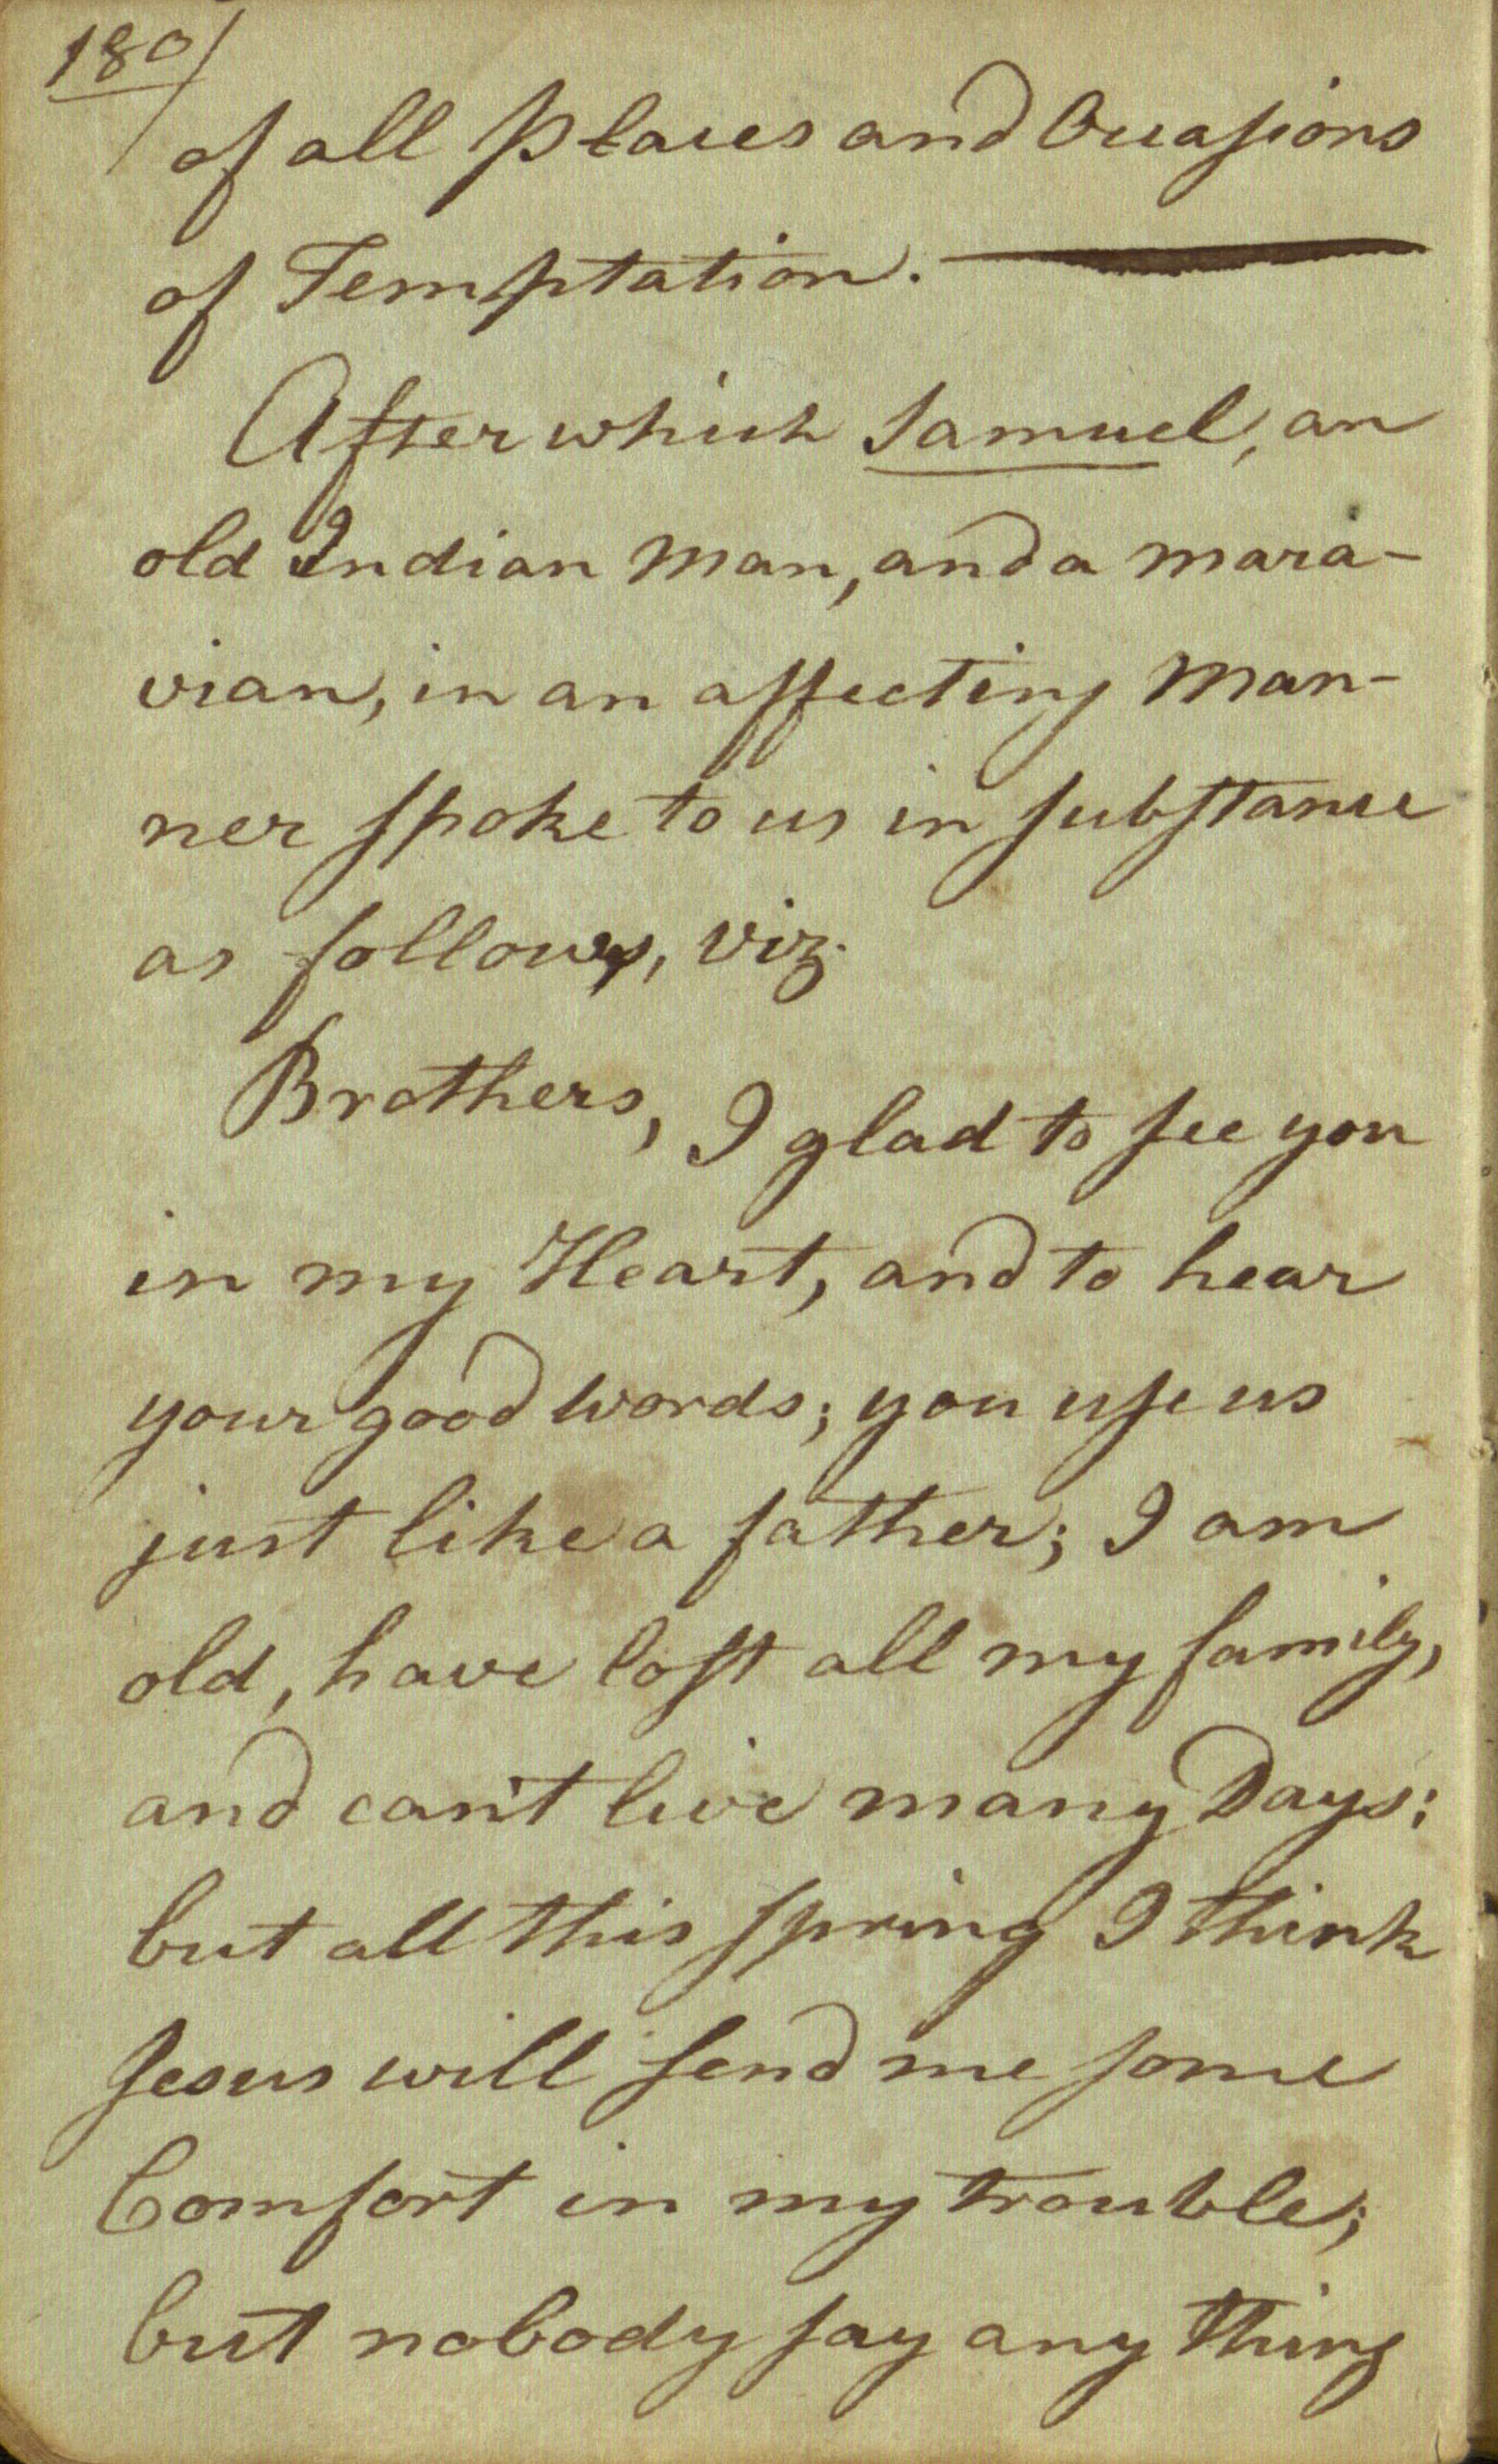 180
of all Places and Occasions
of Temptation.
After which Samuel, an
old Indian Man, and a mara-
vian, in an affecting Man-
ner spoke to us in substance
as follows, viz.
Brothers, I glad to see you
in my Heart, and to hear
your good words; you use us
just like a father; I am
old, have lost all my family,
and can't live many Days:
but all this spring I think
Jesus will send me some
Comfort in my trouble;
but nobody say any thing